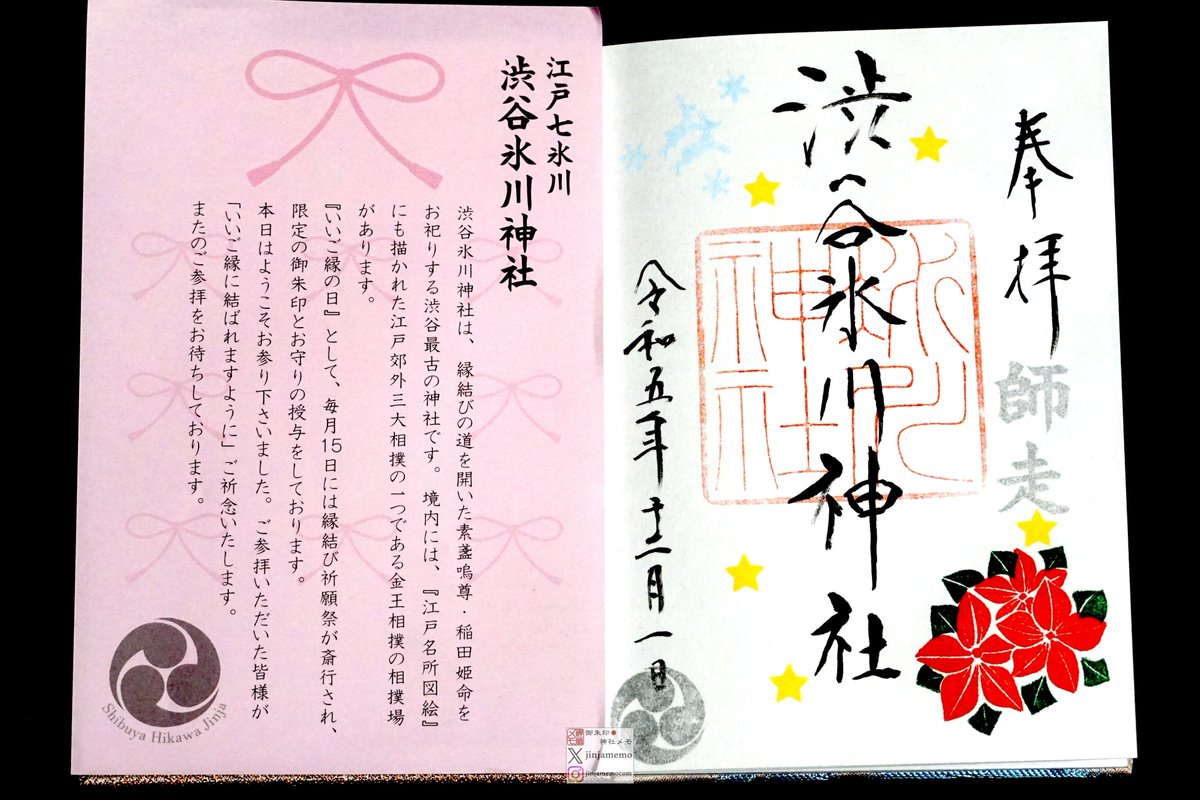 奉拝
師走
渋谷氷川神社
氷川
神社
令和五年十二月一日
江戸七氷川
渋谷氷川神社
渋谷氷川神社は、縁結びの道を開いた素盞嗚尊・稲田姫命を
お祀りする渋谷最古の神社です。境内には、『江戸名所図絵』
にも描かれた江戸郊外三大相撲の一つである金王相撲の相撲場
があります。
『いいご縁の日』として、毎月15日には縁結び祈願祭が斎行され、
限定の御朱印とお守りの授与をしております。
本日はようこそお参り下さいました。ご参拝いただいた皆様が
「いいご縁に結ばれますように」ご祈念いたします。
またのご参拝をお待ちしております。
Shibuya Hikawa Jinja
御朱印
神社メモ
jinjamemo
jinjamemocom